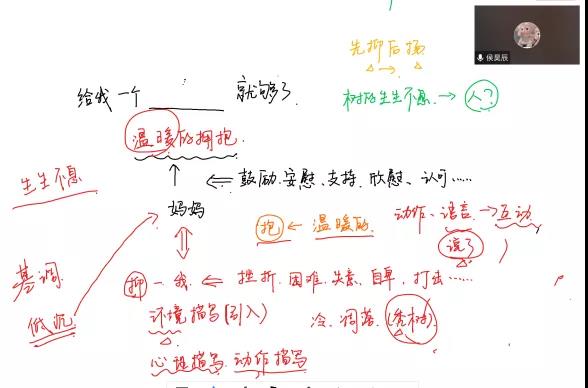 侯昊辰
先抑后扬
给我一个______就够了
树的生生不息 → 人?
温暖的拥抱
生生不息
⇐ 鼓励、安慰、支持、欣慰、认可……
妈妈
抱 ← 温暖的
动作、语言 → 互动
说了
基调
低沉
抑 - 我 ⇐ 挫折、困难、失意、自卑、打击……
环境描写(引入)
冷、凋落、(秃树)
心理描写、动作描写